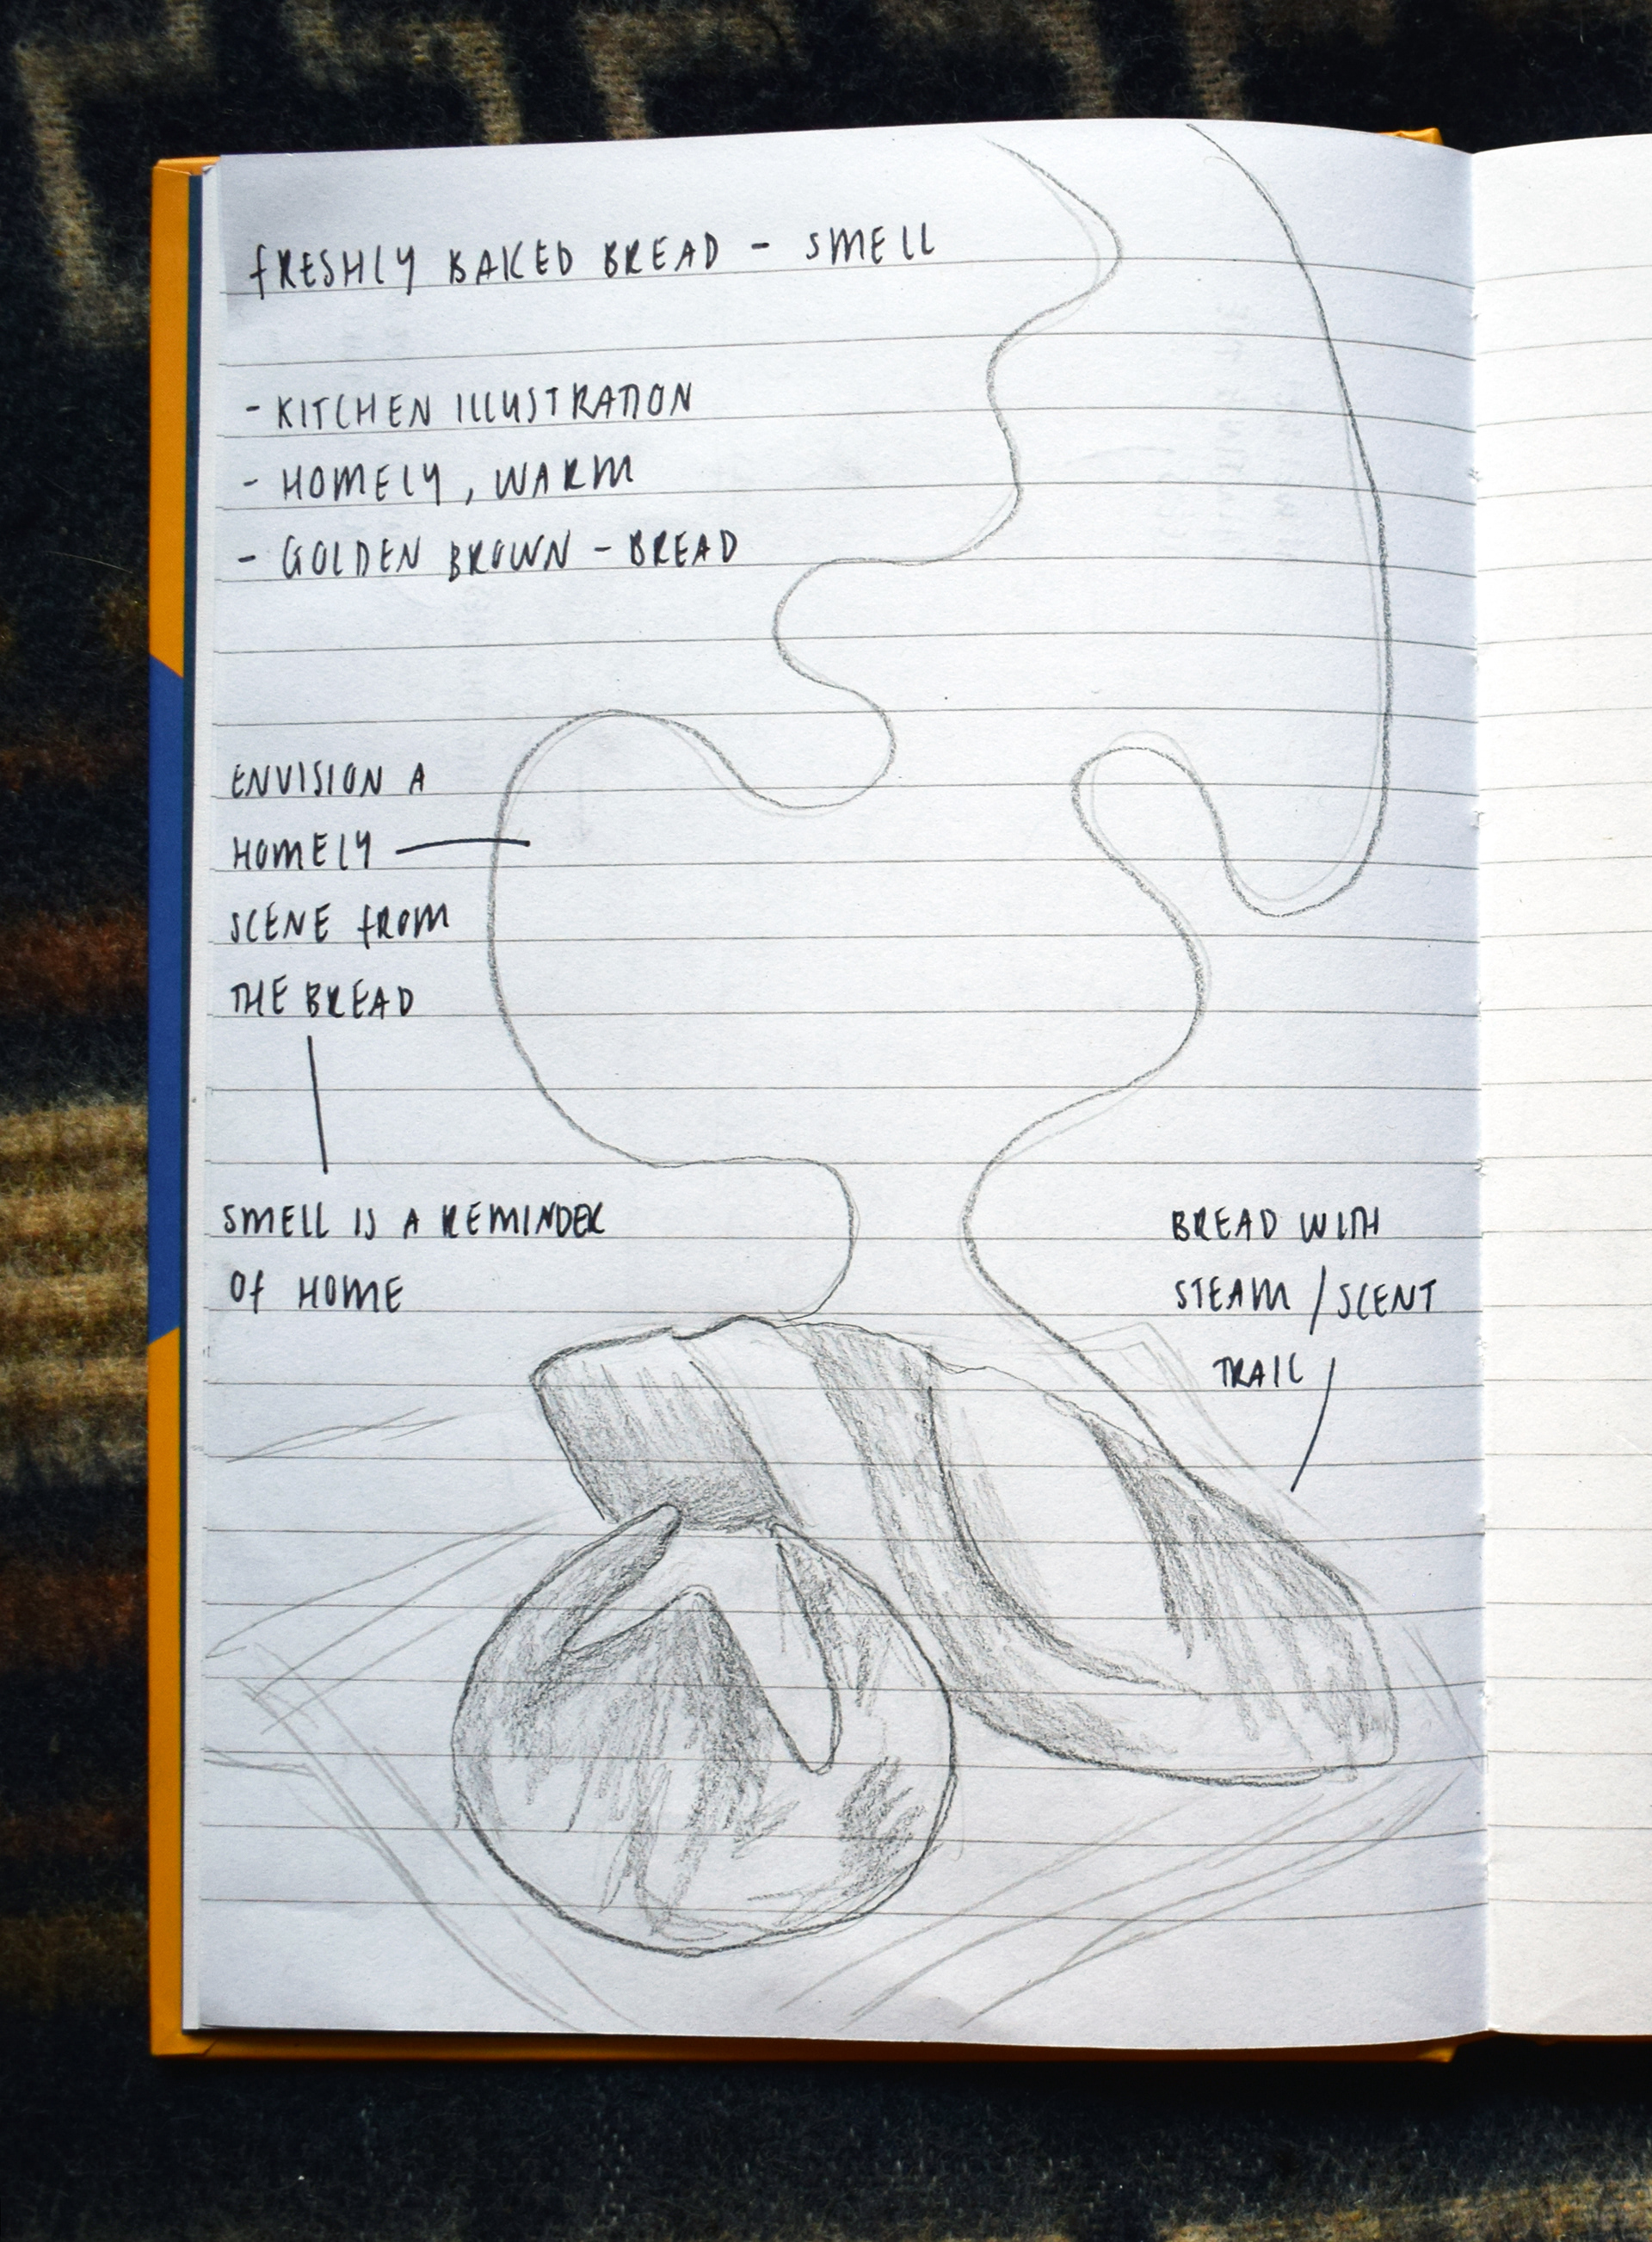 FRESHLY BAKED BREAD - SMELL
- KITCHEN ILLUSTRATION
- HOMELY, WARM
- GOLDEN BROWN - BREAD
ENVISION A
HOMELY
SCENE FROM
THE BREAD
SMELL IS A REMINDER
OF HOME
BREAD WITH
STEAM / SCENT
TRAIL